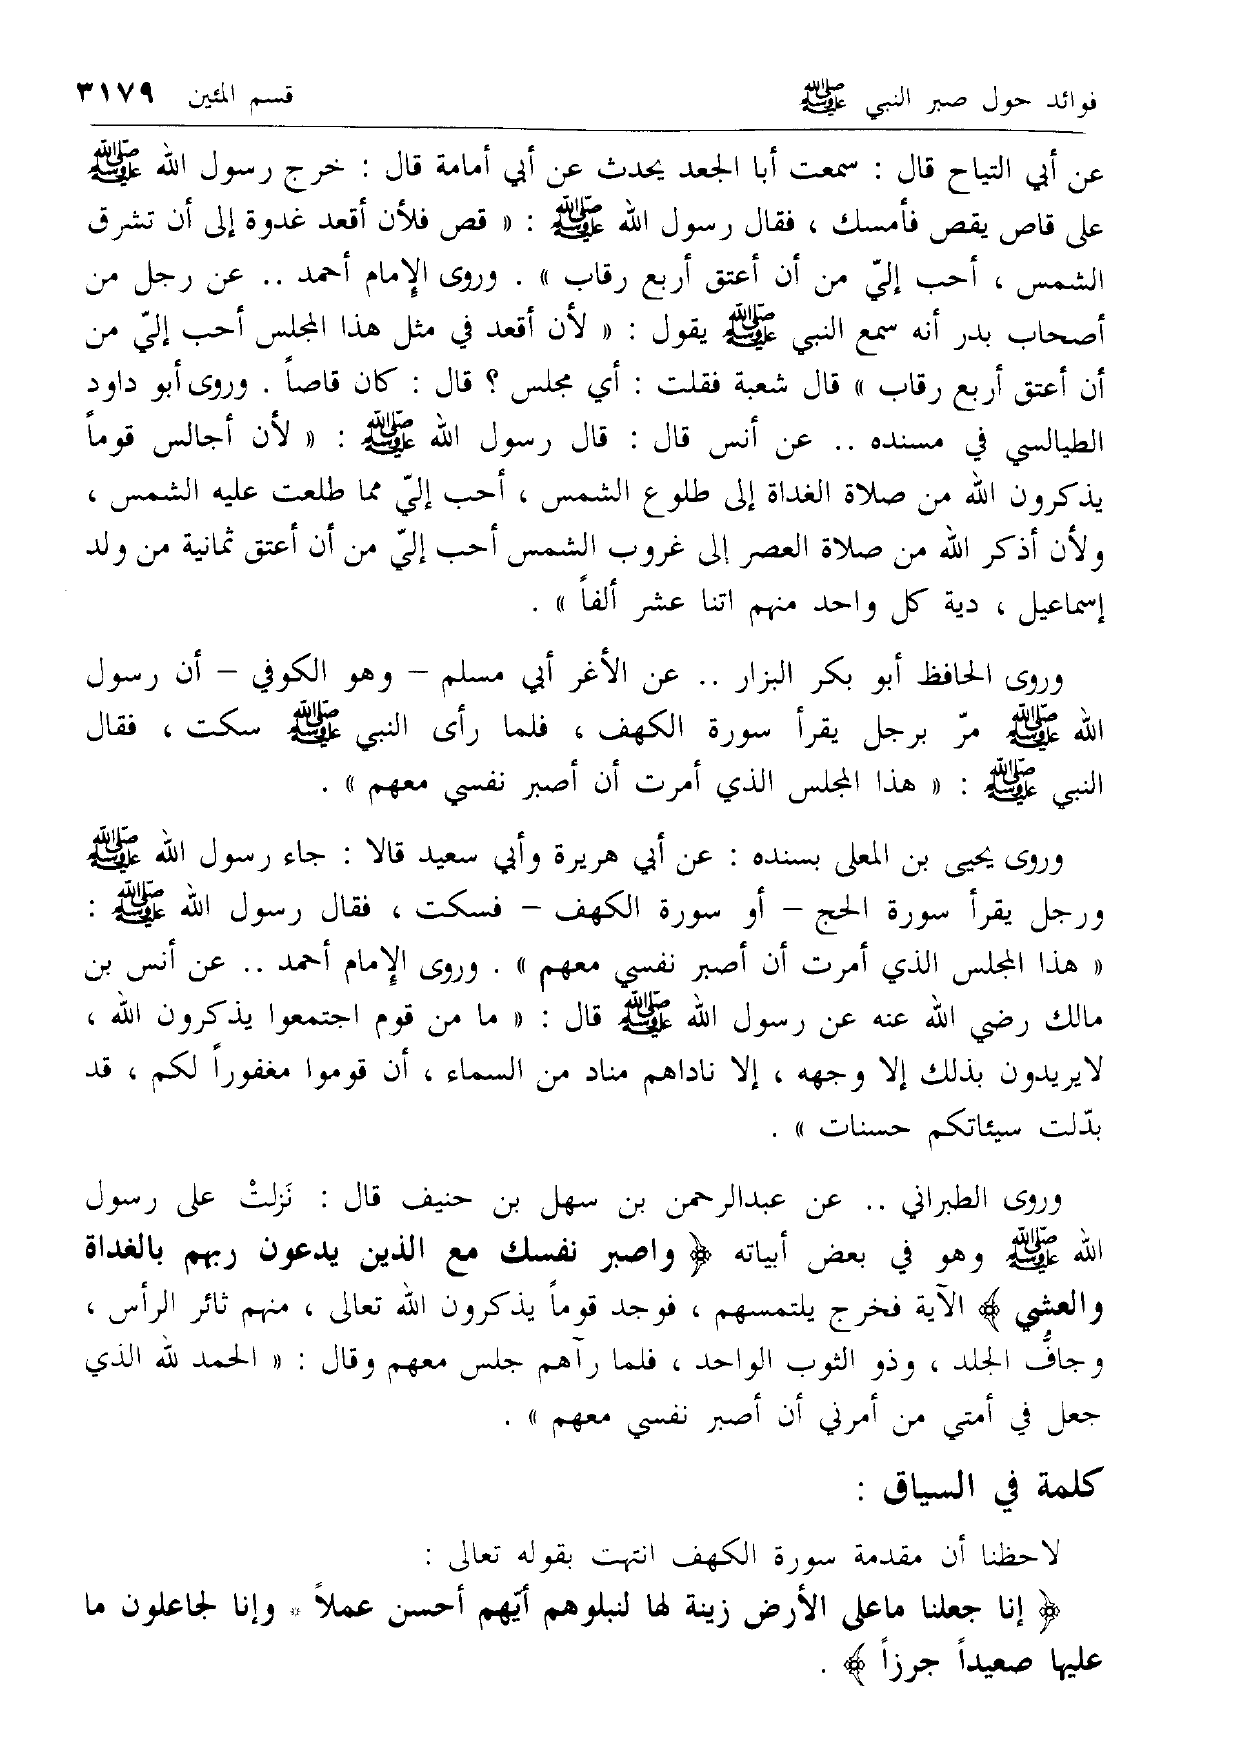 فوائد حول صبر النبي ﷺ قسم المئين ٣١٧٩
عن أبي التياح قال : سمعت أبا الجعد يحدث عن أبي أمامة قال : خرج رسول الله ﷺ
على قاص يقص فأمسك ، فقال رسول الله ﷺ : « قص فلأن أقعد غدوة إلى أن تشرق
الشمس ، أحب إليّ من أن أعتق أربع رقاب » . وروى الإمام أحمد .. عن رجل من
أصحاب بدر أنه سمع النبي ﷺ يقول : « لأن أقعد في مثل هذا المجلس أحب إليّ من
أن أعتق أربع رقاب » قال شعبة فقلت : أي مجلس ؟ قال : كان قاصاً . وروى أبو داود
الطيالسي في مسنده .. عن أنس قال : قال رسول الله ﷺ : « لأن أجالس قوماً
يذكرون الله من صلاة الغداة إلى طلوع الشمس ، أحب إليّ مما طلعت عليه الشمس ،
ولأن أذكر الله من صلاة العصر إلى غروب الشمس أحب إليّ من أن أعتق ثمانية من ولد
إسماعيل ، دية كل واحد منهم اتنا عشر ألفاً » .
وروى الحافظ أبو بكر البزار .. عن الأغر أبي مسلم – وهو الكوفي – أن رسول
الله ﷺ مرّ برجل يقرأ سورة الكهف ، فلما رأى النبي ﷺ سكت ، فقال
النبي ﷺ : « هذا المجلس الذي أمرت أن أصبر نفسي معهم » .
وروى يحيى بن المعلى بسنده : عن أبي هريرة وأبي سعيد قالا : جاء رسول الله ﷺ
ورجل يقرأ سورة الحج – أو سورة الكهف – فسكت ، فقال رسول الله ﷺ :
« هذا المجلس الذي أمرت أن أصبر نفسي معهم » . وروى الإمام أحمد .. عن أنس بن
مالك رضي الله عنه عن رسول الله ﷺ قال : « ما من قوم اجتمعوا يذكرون الله ،
لايريدون بذلك إلا وجهه ، إلا ناداهم مناد من السماء ، أن قوموا مغفوراً لكم ، قد
بدّلت سيئاتكم حسنات » .
وروى الطبراني .. عن عبدالرحمن بن سهل بن حنيف قال : نَزلتْ على رسول
الله ﷺ وهو في بعض أبياته ﴿ واصبر نفسك مع الذين يدعون ربهم بالغداة
والعشي ﴾ الآية فخرج يلتمسهم ، فوجد قوماً يذكرون الله تعالى ، منهم ثائر الرأس ،
وجافُّ الجلد ، وذو الثوب الواحد ، فلما رآهم جلس معهم وقال : « الحمد لله الذي
جعل في أمتي من أمرني أن أصبر نفسي معهم » .
كلمة في السياق :
لاحظنا أن مقدمة سورة الكهف انتهت بقوله تعالى :
﴿ إنا جعلنا ماعلى الأرض زينة لها لنبلوهم أيّهم أحسن عملاً * وإنا لجاعلون ما
عليها صعيداً جرزاً ﴾ .